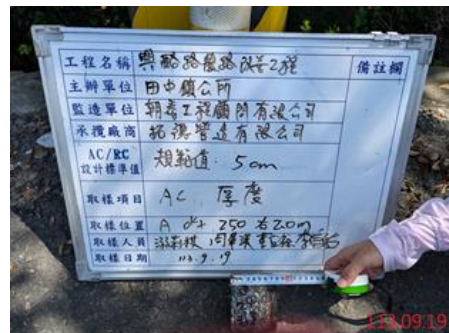 工程名稱 興酪路農路改善工程 備註欄
主辦單位 田中鎮公所
監造單位 朝彥工程顧問有限公司
承攬廠商 拓德營造有限公司
AC/RC
設計標準值 規範值: 5cm
取樣項目 AC 厚度
取樣位置 A 0+250 右2.0m
取樣人員
取樣日期 113.9.19
113.09.19